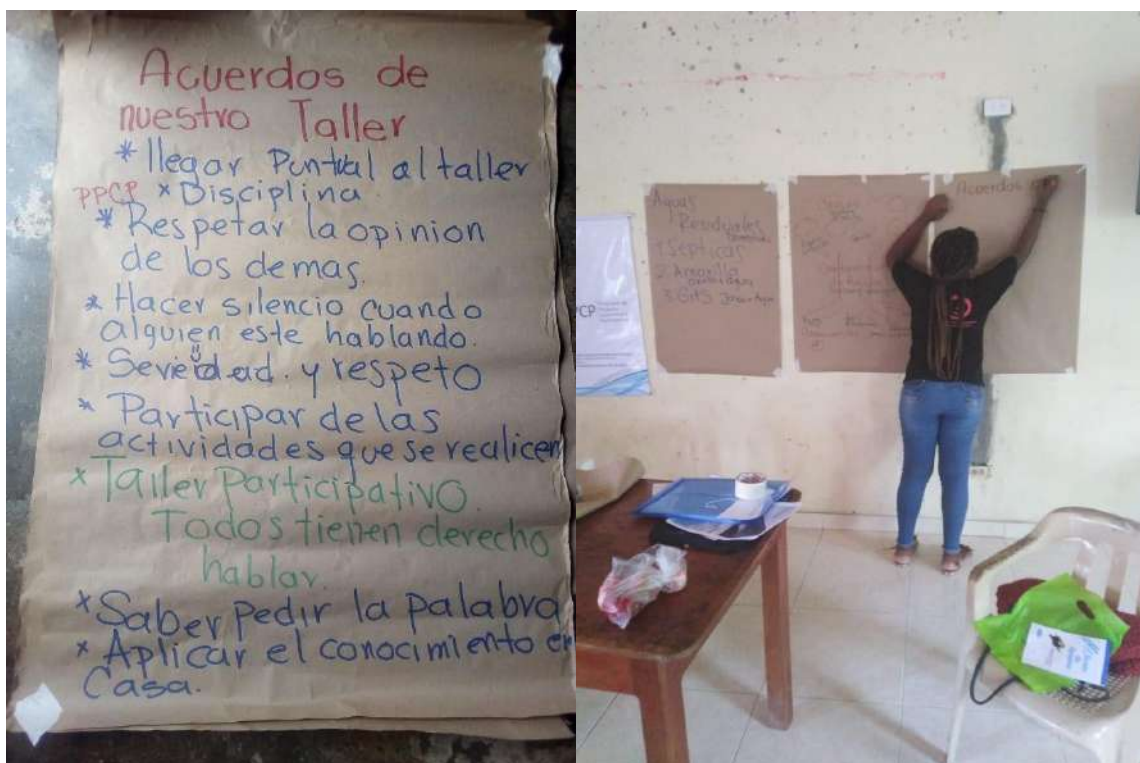 Acuerdos de
nuestro Taller
* llegar Puntual al taller
PPCP * Disciplina
* Respetar la opinion
de los demas.
* Hacer silencio cuando
alguien este hablando.
* Seriedad. y respeto
* Participar de las
actividades que se realicen
* Taller Participativo.
Todos tienen derecho
hablar.
* Saber pedir la palabra
* Aplicar el conocimiento en
Casa.
Aguas
Residuales
1. Septicas
2. Amarilla
3. Gris
Acuerdos